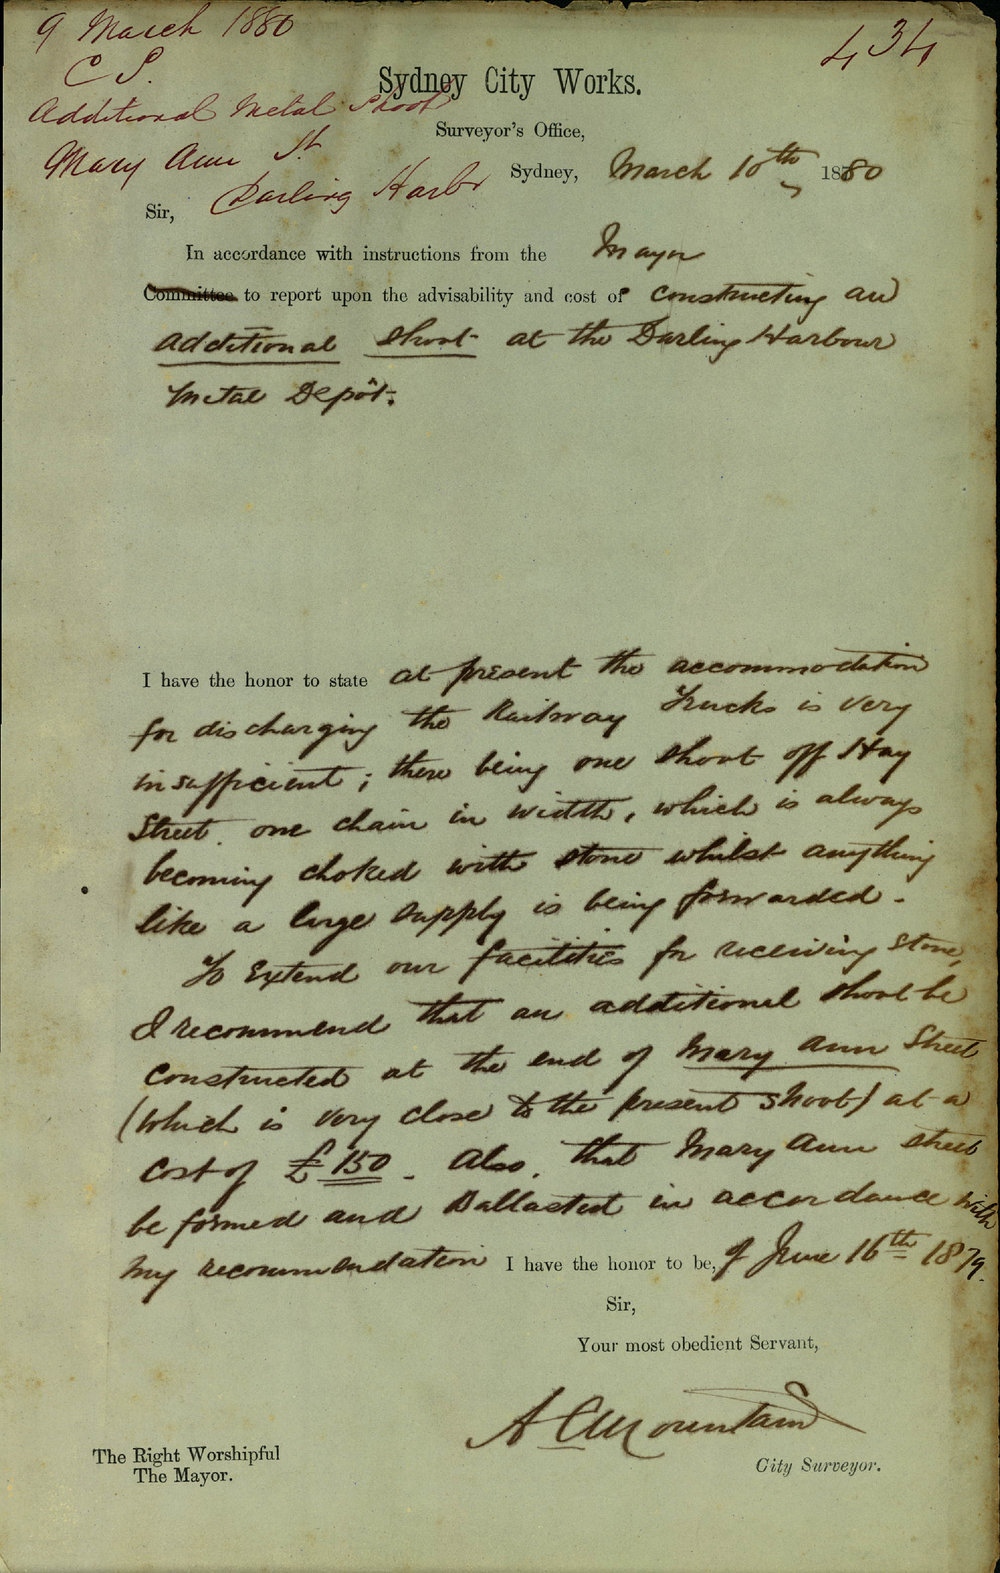 9 March 1880
434
C S.
Sydney City Works.
Additional Metal Shoot
Surveyor's Office,
Mary Ann St
Sydney, March 10th 1880
Darling Harbr
Sir,
In accordance with instructions from the Mayor
Committee to report upon the advisability and cost of constructing an
additional shoot at the Darling Harbour
Metal Depôt.
I have the honor to state at present the accommodation
for discharging the Railway Trucks is very
insufficient; there being one shoot off Hay
Street, one chain in width, which is always
becoming choked with stone whilst anything
like a large supply is being forwarded.
To Extend our facilities for receiving stone,
I recommend that an additional shoot be
constructed at the end of Mary Ann Street
(which is very close to the present shoot) at a
cost of £150. Also, that Mary Ann street
be formed and Ballasted in accordance with
my recommendation I have the honor to be, of June 16th 1879.
Sir,
Your most obedient Servant,
A C Mountain
The Right Worshipful
City Surveyor.
The Mayor.